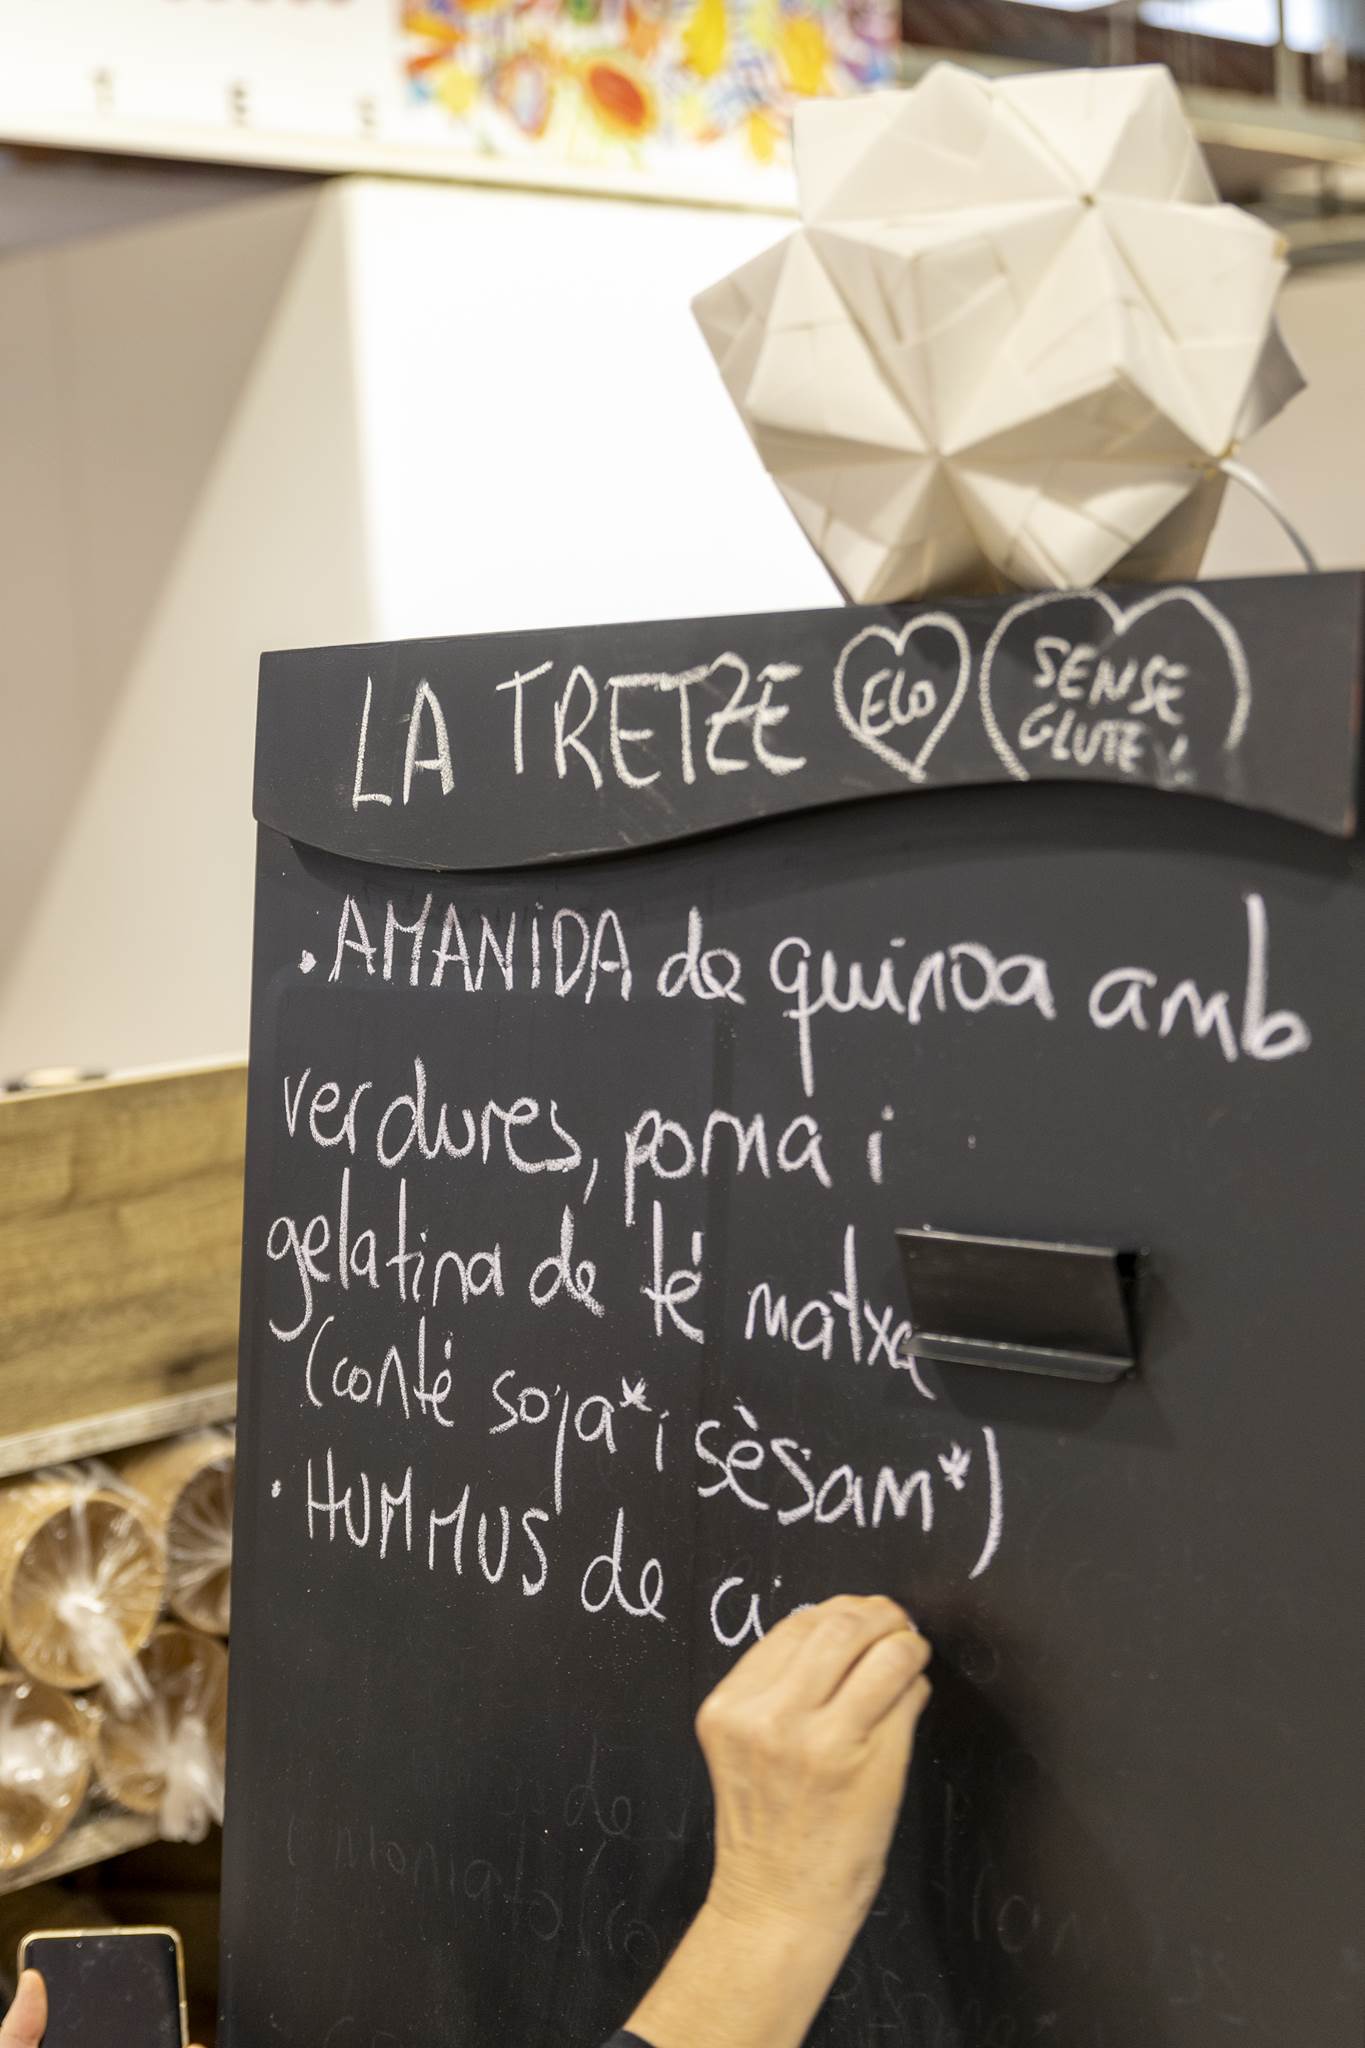 LA TRETZE
ELO
SENSE
GLUTEN
· AMANIDA de quinoa amb
verdures, poma i
gelatina de té matxa
(conté soja* i sèsam*)
· HUMMUS de